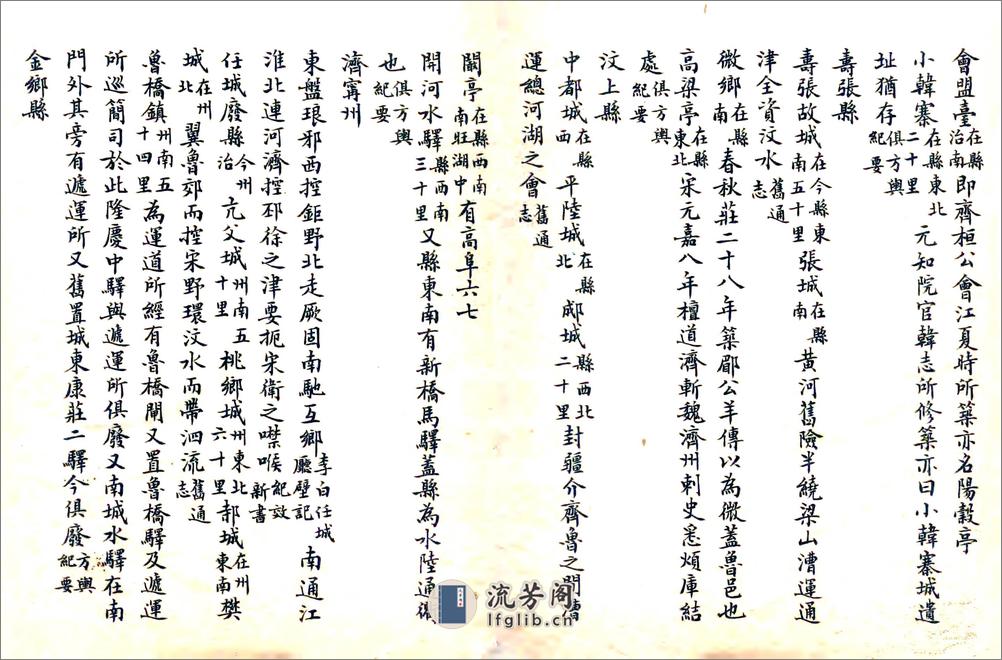 會盟臺在縣治南即齊桓公會江夏時所築亦名陽穀亭
小韓寨在縣東北二十里元知院官韓志所修築亦曰小韓寨城遺
址猶存俱方輿紀要
壽張縣
壽張故城在今縣東南五十里張城在縣南黃河舊險半繞梁山漕運通
津全資汶水舊通志
微鄉在縣南春秋莊二十八年築郿公羊傳以為微蓋魯邑也
高梁亭在縣東北宋元嘉八年檀道濟斬魏濟州刺史悉煩庫結
處俱方輿紀要
汶上縣
中都城在縣西平陸城在縣北郕城縣西北二十里封疆介齊魯之間
運總河湖之會舊通志
闞亭在縣西南南旺湖中有高阜六七
開河水驛縣西南三十里又縣東南有新橋馬驛蓋縣為水陸通衢
也俱方輿紀要
濟寧州
東盤琅邪西控鉅野北走厥固南馳互鄉李白任城廳壁記南通江
淮北連河濟控邳徐之津要扼宋衛之噤喉紀效新書
任城廢縣今州治亢父城州南五十里桃鄉城州東北六十里郝城在州東南樊
城在州北翼魯郊而控宋野環汶水而帶泗流舊通志
魯橋鎮州南五十四里為運道所經有魯橋閘又置魯橋驛及遞運
所巡簡司於此隆慶中驛與遞運所俱廢又南城水驛在南
門外其旁有遞運所又舊置城東康莊二驛今俱廢方輿紀要
金鄉縣
流芳阁
lfglib.cn